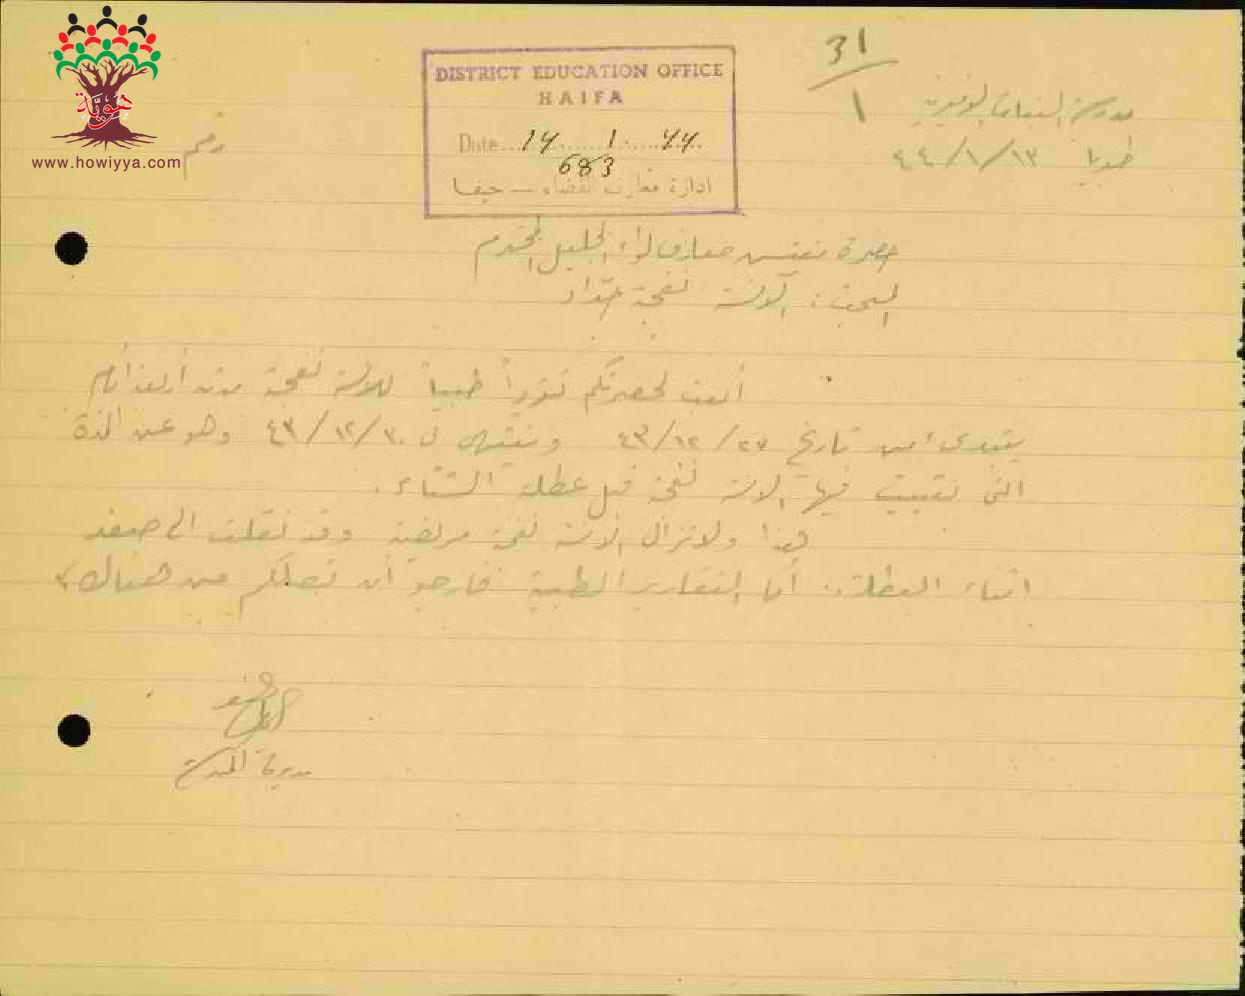 هوية
www.howiyya.com
DISTRICT EDUCATION OFFICE
HAIFA
Date...14......1......44..
683
ادارة معارف القضاء — حيفا
31
1
مدرسة البنات الاميرية
طبريا ١٣/١/٤٤
رقم
حضرة مفتش معارف لواء الجليل المحترم
المبحث: الآنسة نفجة حداد
أبعث لحضرتكم تقريراً طبياً للآنسة نفجة مدته أربعة أيام
يبتدىء من تاريخ ٢٧/١٢/٤٣ وينتهي في ٣٠/١٢/٤٣ وهو عن المدة
التي تغيبت فيها الآنسة نفجة قبل عطلة الشتاء.
هذا ولا تزال الآنسة نفجة مريضة وقد نقلت الى صفد
اثناء العطلة. أما التقارير الطبية فأرجو أن تصلكم من هناك
مديرة المدرسة